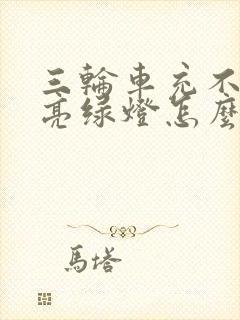 三輪車充不
亮綠燈怎麼
馬塔